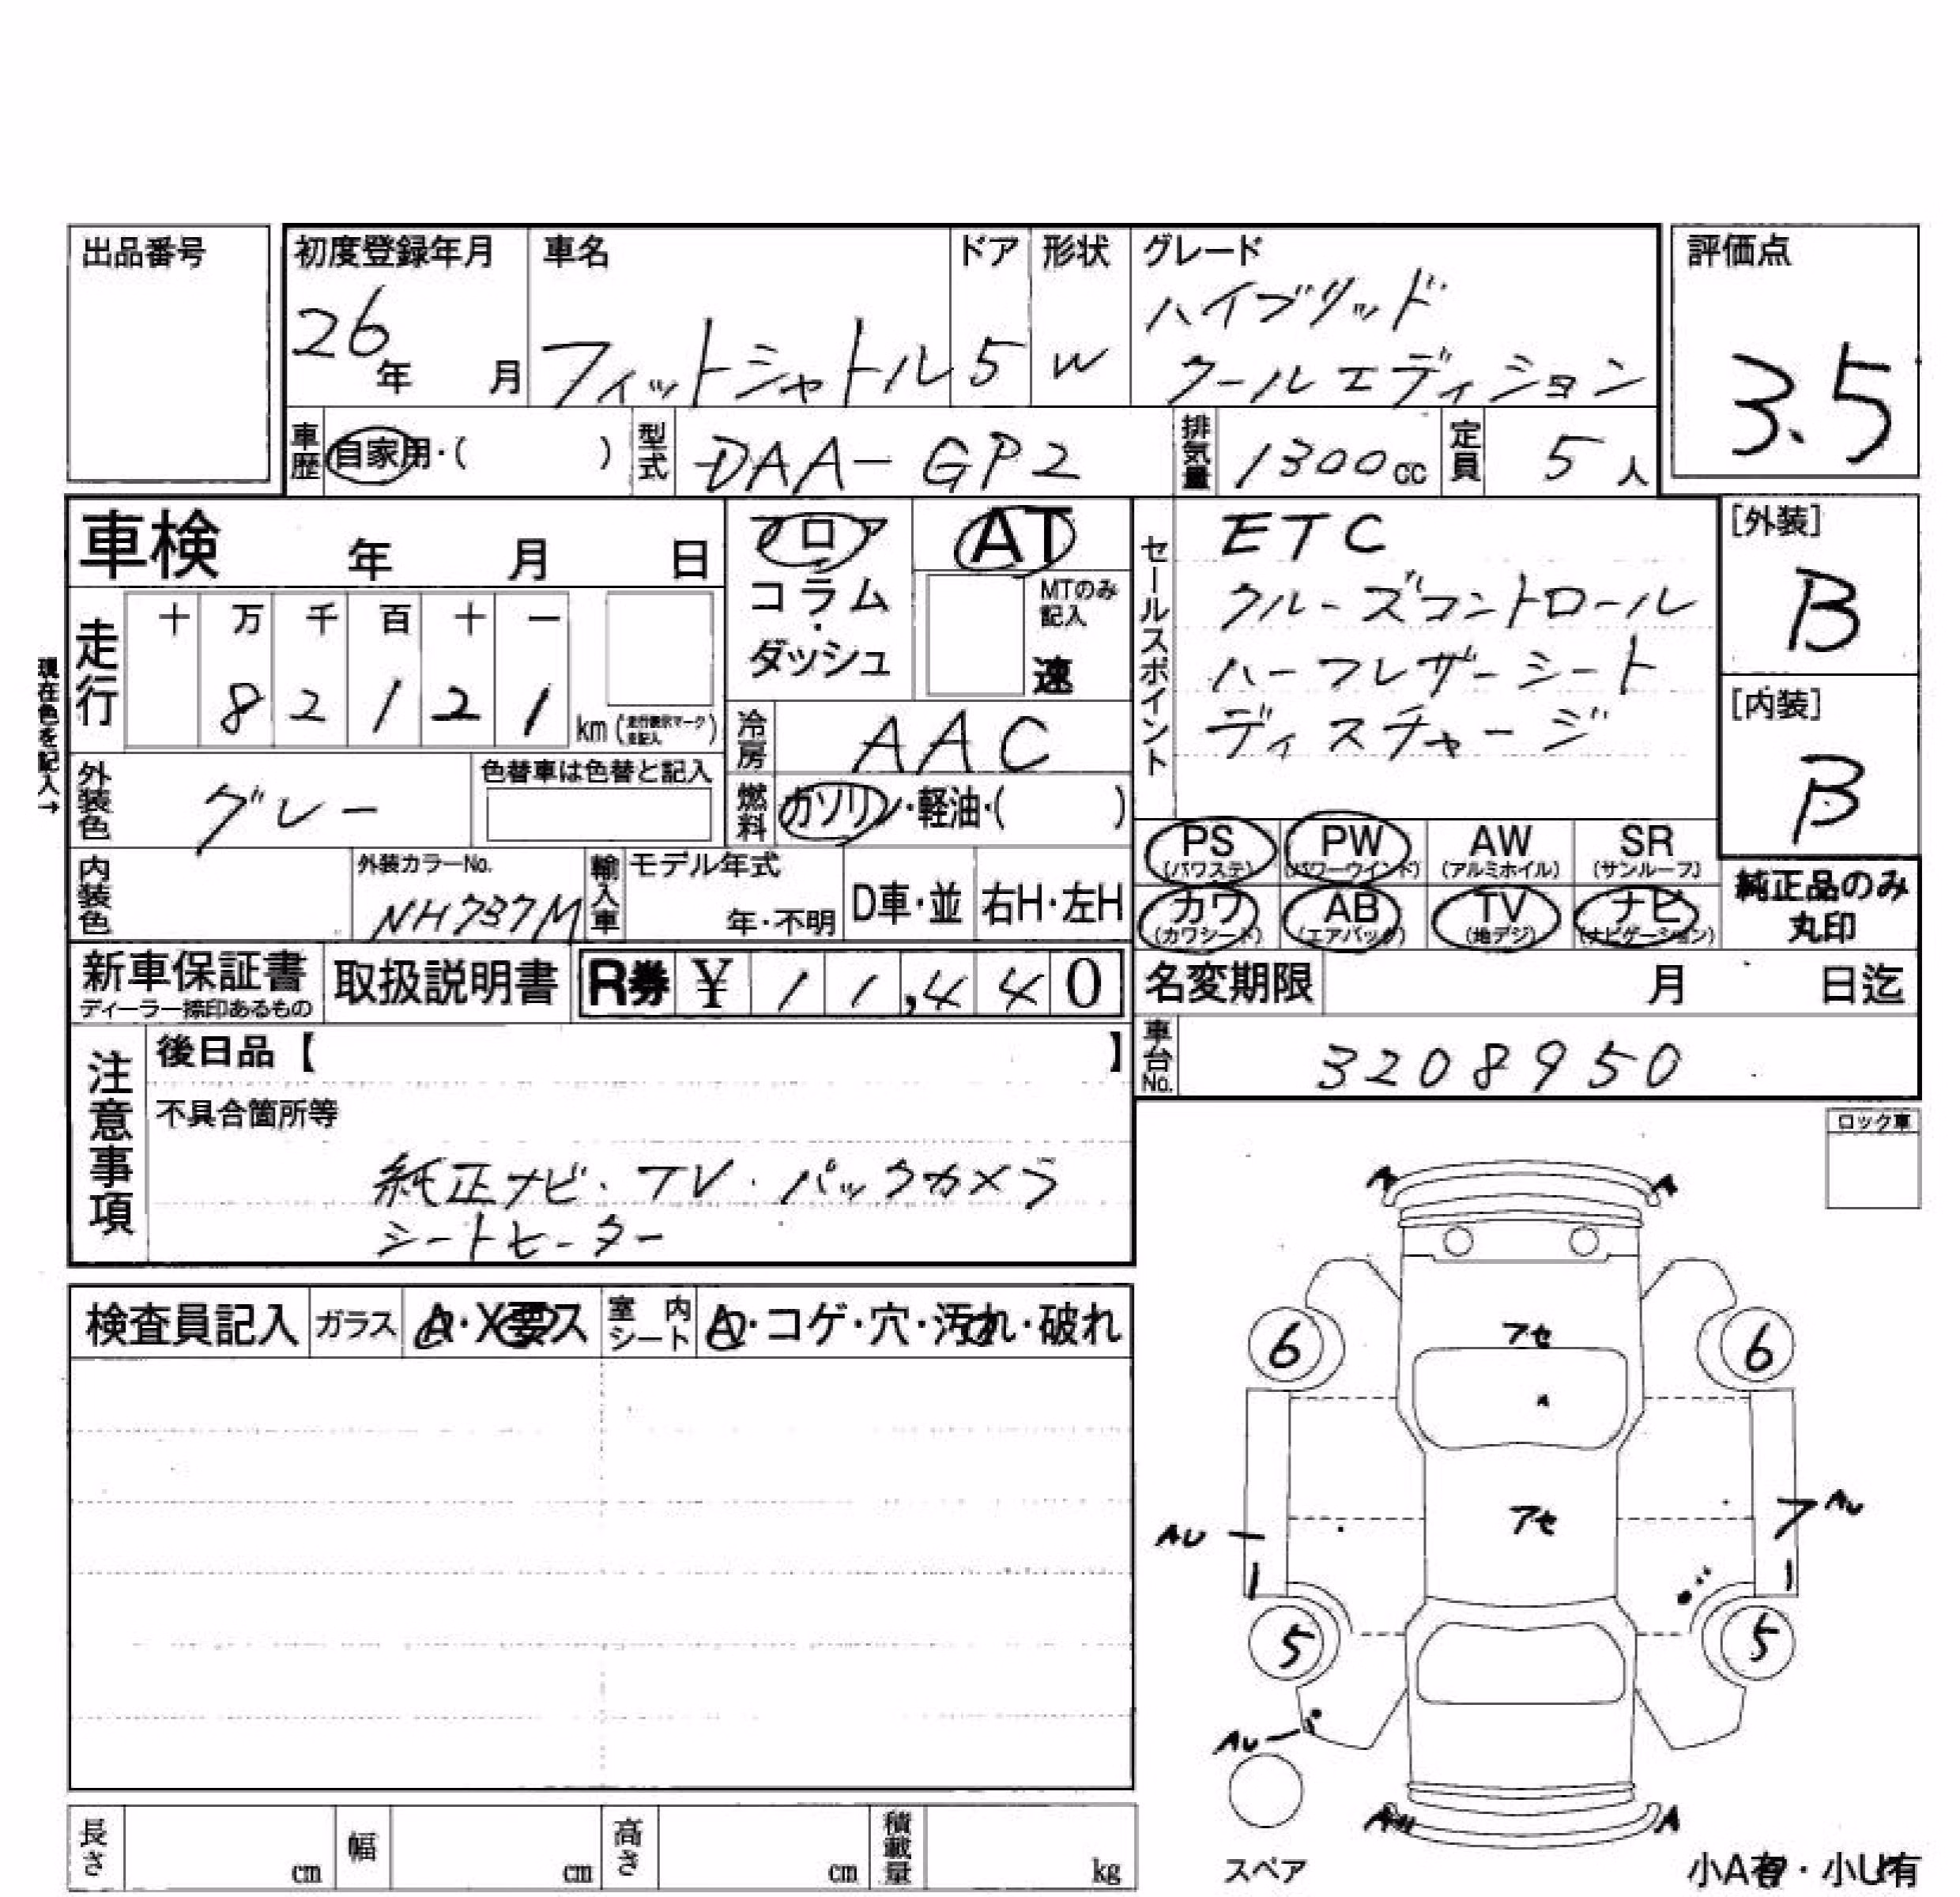 出品番号
初度登録年月
26年 月
車名
フィットシャトル
ドア
5
形状
W
グレード
ハイブリッド
クールエディション
評価点
3.5
車歴
自家用・( )
型式
DAA-GP2
排気量
1300cc
定員
5人
車検 年 月 日
フロア
コラム
・
ダッシュ
AT
MTのみ
記入
速
セールスポイント
ETC
クルーズコントロール
ハーフレザーシート
ディスチャージ
[外装]
B
[内装]
B
現在色を記入→
走行
十 万 千 百 十 一
8 2 1 2 1
km (走行表示マーク
)
冷房
AAC
外装色
グレー
色替車は色替と記入
燃料
ガソリン・軽油・( )
PS
(パワステ)
PW
(パワーウインド)
AW
(アルミホイル)
SR
(サンルーフ)
内装色
外装カラーNo.
NH737M
輸入車
モデル年式
年・不明
D車・並
右H・左H
カワ
(カワシート)
AB
(エアバック)
TV
(地デジ)
ナビ
(ナビゲーション)
純正品のみ
丸印
新車保証書
ディーラー捺印あるもの
取扱説明書
R券 ¥ 11,440
名変期限 月 日迄
車台No.
3208950
注意事項
後日品【 】
不具合箇所等
純正ナビ・TV・バックカメラ
シートヒーター
ロック車
検査員記入
ガラス
A・X要ス
室内
シート
A・コゲ・穴・汚れ・破れ
A
A
6
アセ
6
AU
アセ
AU
5
5
AU
A
スペア
小A有・小U有
長さ
cm
幅
cm
高さ
cm
積載量
kg